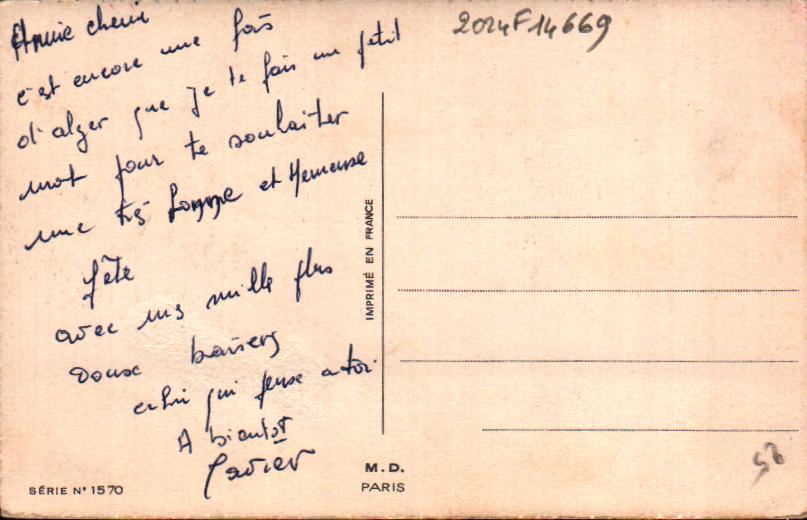 Annie cherie
c'est encore une fois
d'alger que je te fais un petit
mot pour te souhaiter
une très bonne et Heureuse
fête
avec mes mille plus
Doux baisers
celui qui pense a toi
A bientot
2024F14669
IMPRIMÉ EN FRANCE
SÉRIE N° 1570
M.D.
PARIS